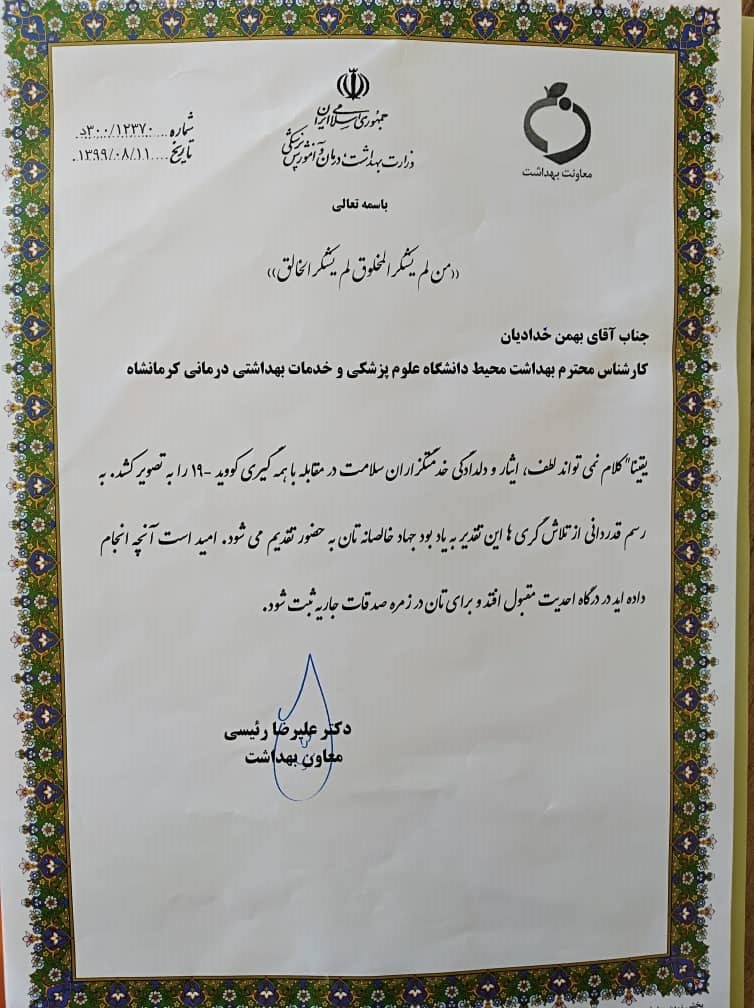 جمهوری اسلامی ایران
وزارت بهداشت، درمان و آموزش پزشکی
معاونت بهداشت
شماره ....۳۰۰/۱۲۳۷۰د.
تاریخ ....۱۳۹۹/۰۸/۱۱.
باسمه تعالی
((من لم یشکر المخلوق لم یشکر الخالق))
جناب آقای بهمن خدادیان
کارشناس محترم بهداشت محیط دانشگاه علوم پزشکی و خدمات بهداشتی درمانی کرمانشاه
یقینا" کلام نمی تواند لطف، ایثار و دلدادگی خدمتگزاران سلامت در مقابله با همه گیری کووید -۱۹ را به تصویر کشد. به
رسم قدردانی از تلاش گری ها این تقدیر به یاد بود جهاد خالصانه تان به حضور تقدیم می شود. امید است آنچه انجام
داده اید در درگاه احدیت مقبول افتد و برای تان در زمره صدقات جاریه ثبت شود.
دکتر علیرضا رئیسی
معاون بهداشت